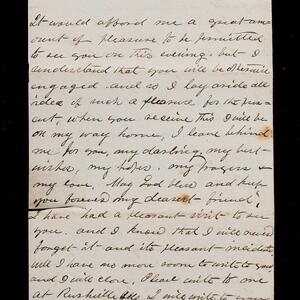 It would afford me a great am-
ount of pleasure to be permitted
to see you on this evening. but I
understand that you will be otherwise
engaged. and so I lay aside all
idea of such a pleasure. for the pres-
ent, when you receive this I will be
on my way home, I leave behind
me for you, my darling, my best
wishes, my hopes. my prayers &
my love. May God bless and keep
you forever my dearest friend;
I have had a pleasant visit to see
you. and I know that I will never
forget it and its pleasant
will I have no more room to write to you
and I will close. Please write to me
at Rushville I will write to you